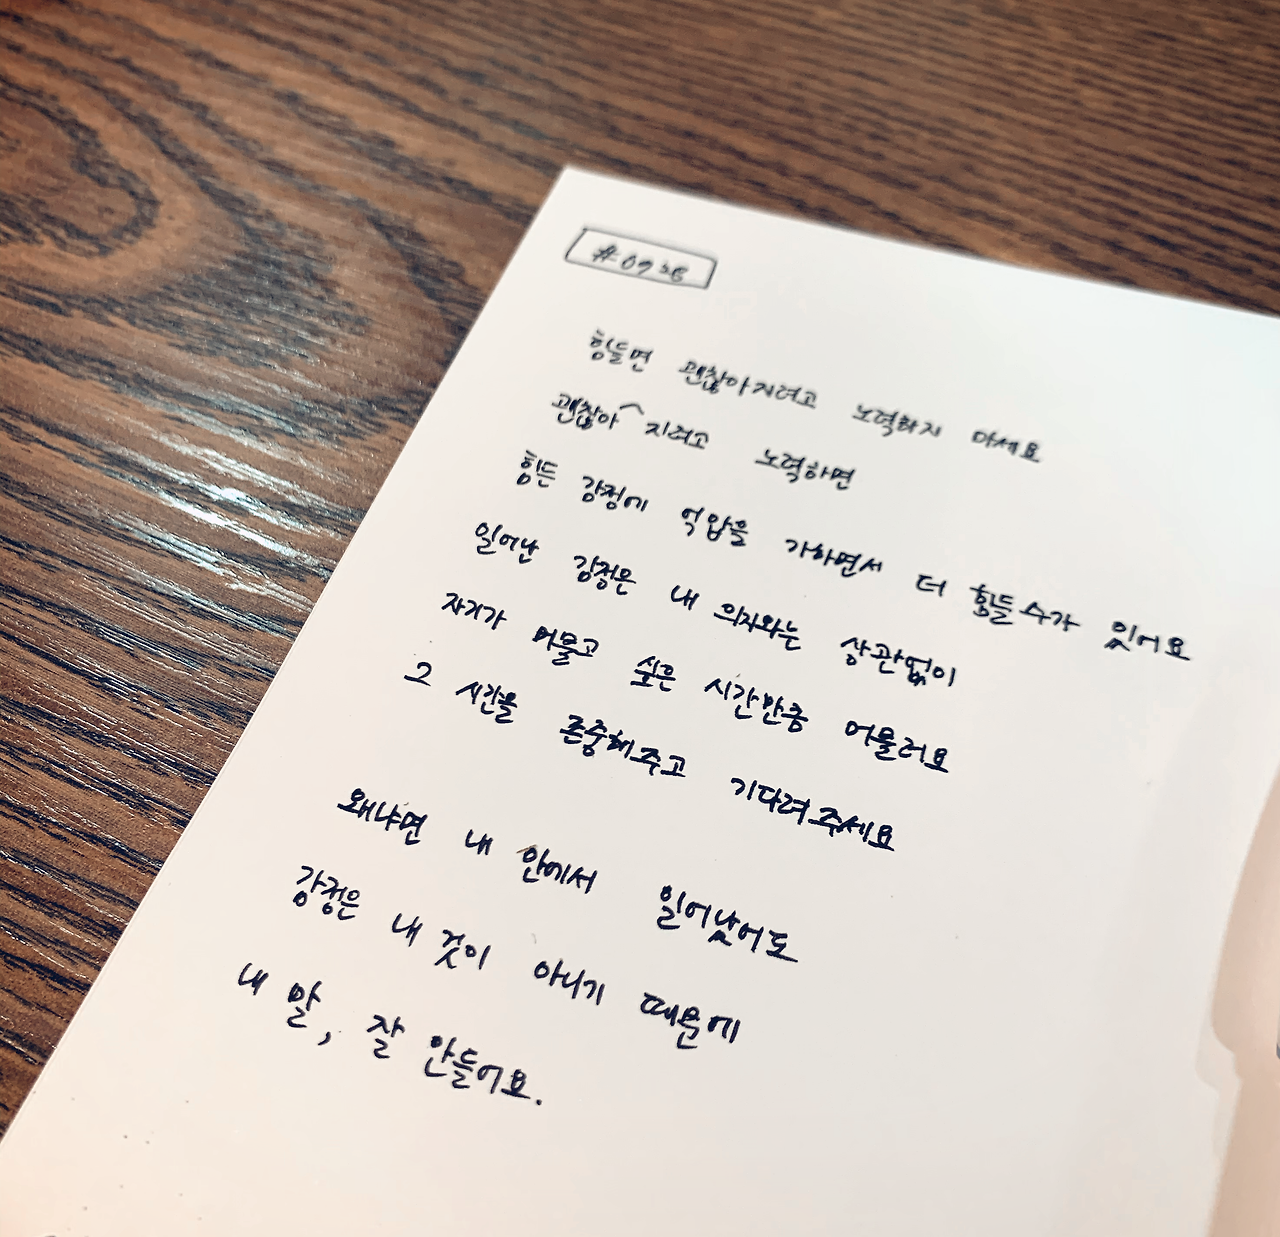 #0926
힘들면 괜찮아지려고 노력하지 마세요
괜찮아 지려고 노력하면
힘든 감정에 억압을 가하면서 더 힘들수가 있어요
일어난 감정은 내 의지와는 상관없이
자기가 머물고 싶은 시간만큼 머물러요
그 시간을 존중해주고 기다려주세요
왜냐면 내 안에서 일어났어도
감정은 내 것이 아니기 때문에
내 말, 잘 안들어요.